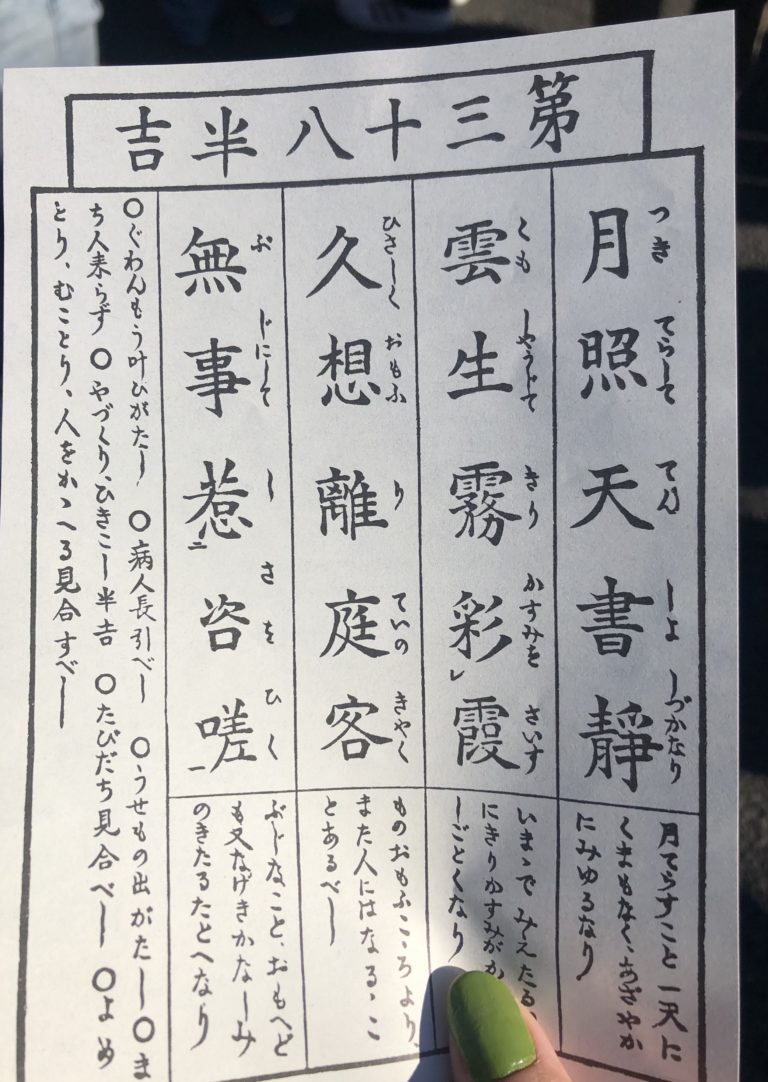 第三十八半吉
つき てらして てん しよ しづかなり
月照天書靜
月てらすこと一天に
くまもなく、あざやか
にみゆるなり
くも しやうじて きり かすみを さいす
雲生霧彩レ霞
いまゝで みえたる
にきりかすみがか
しごとくなり
ひさしく おもふ り ていの きやく
久想離庭客
ものおもふこゝろより、
また人にはなるゝこ
とあるべし
ぶ じにして し さ を ひく
無事惹二咨嗟一
ぶじなこと、おもへど
も又なげきかなしみ
のきたるたとへなり
○ぐわんもう叶ひがたし ○病人長引べし ○うせもの出がたし○ま
ち人来らず ○やづくり、ひきこし半吉 ○たびだち見合べし ○よめ
とり、むことり、人をかゝへる見合すべし